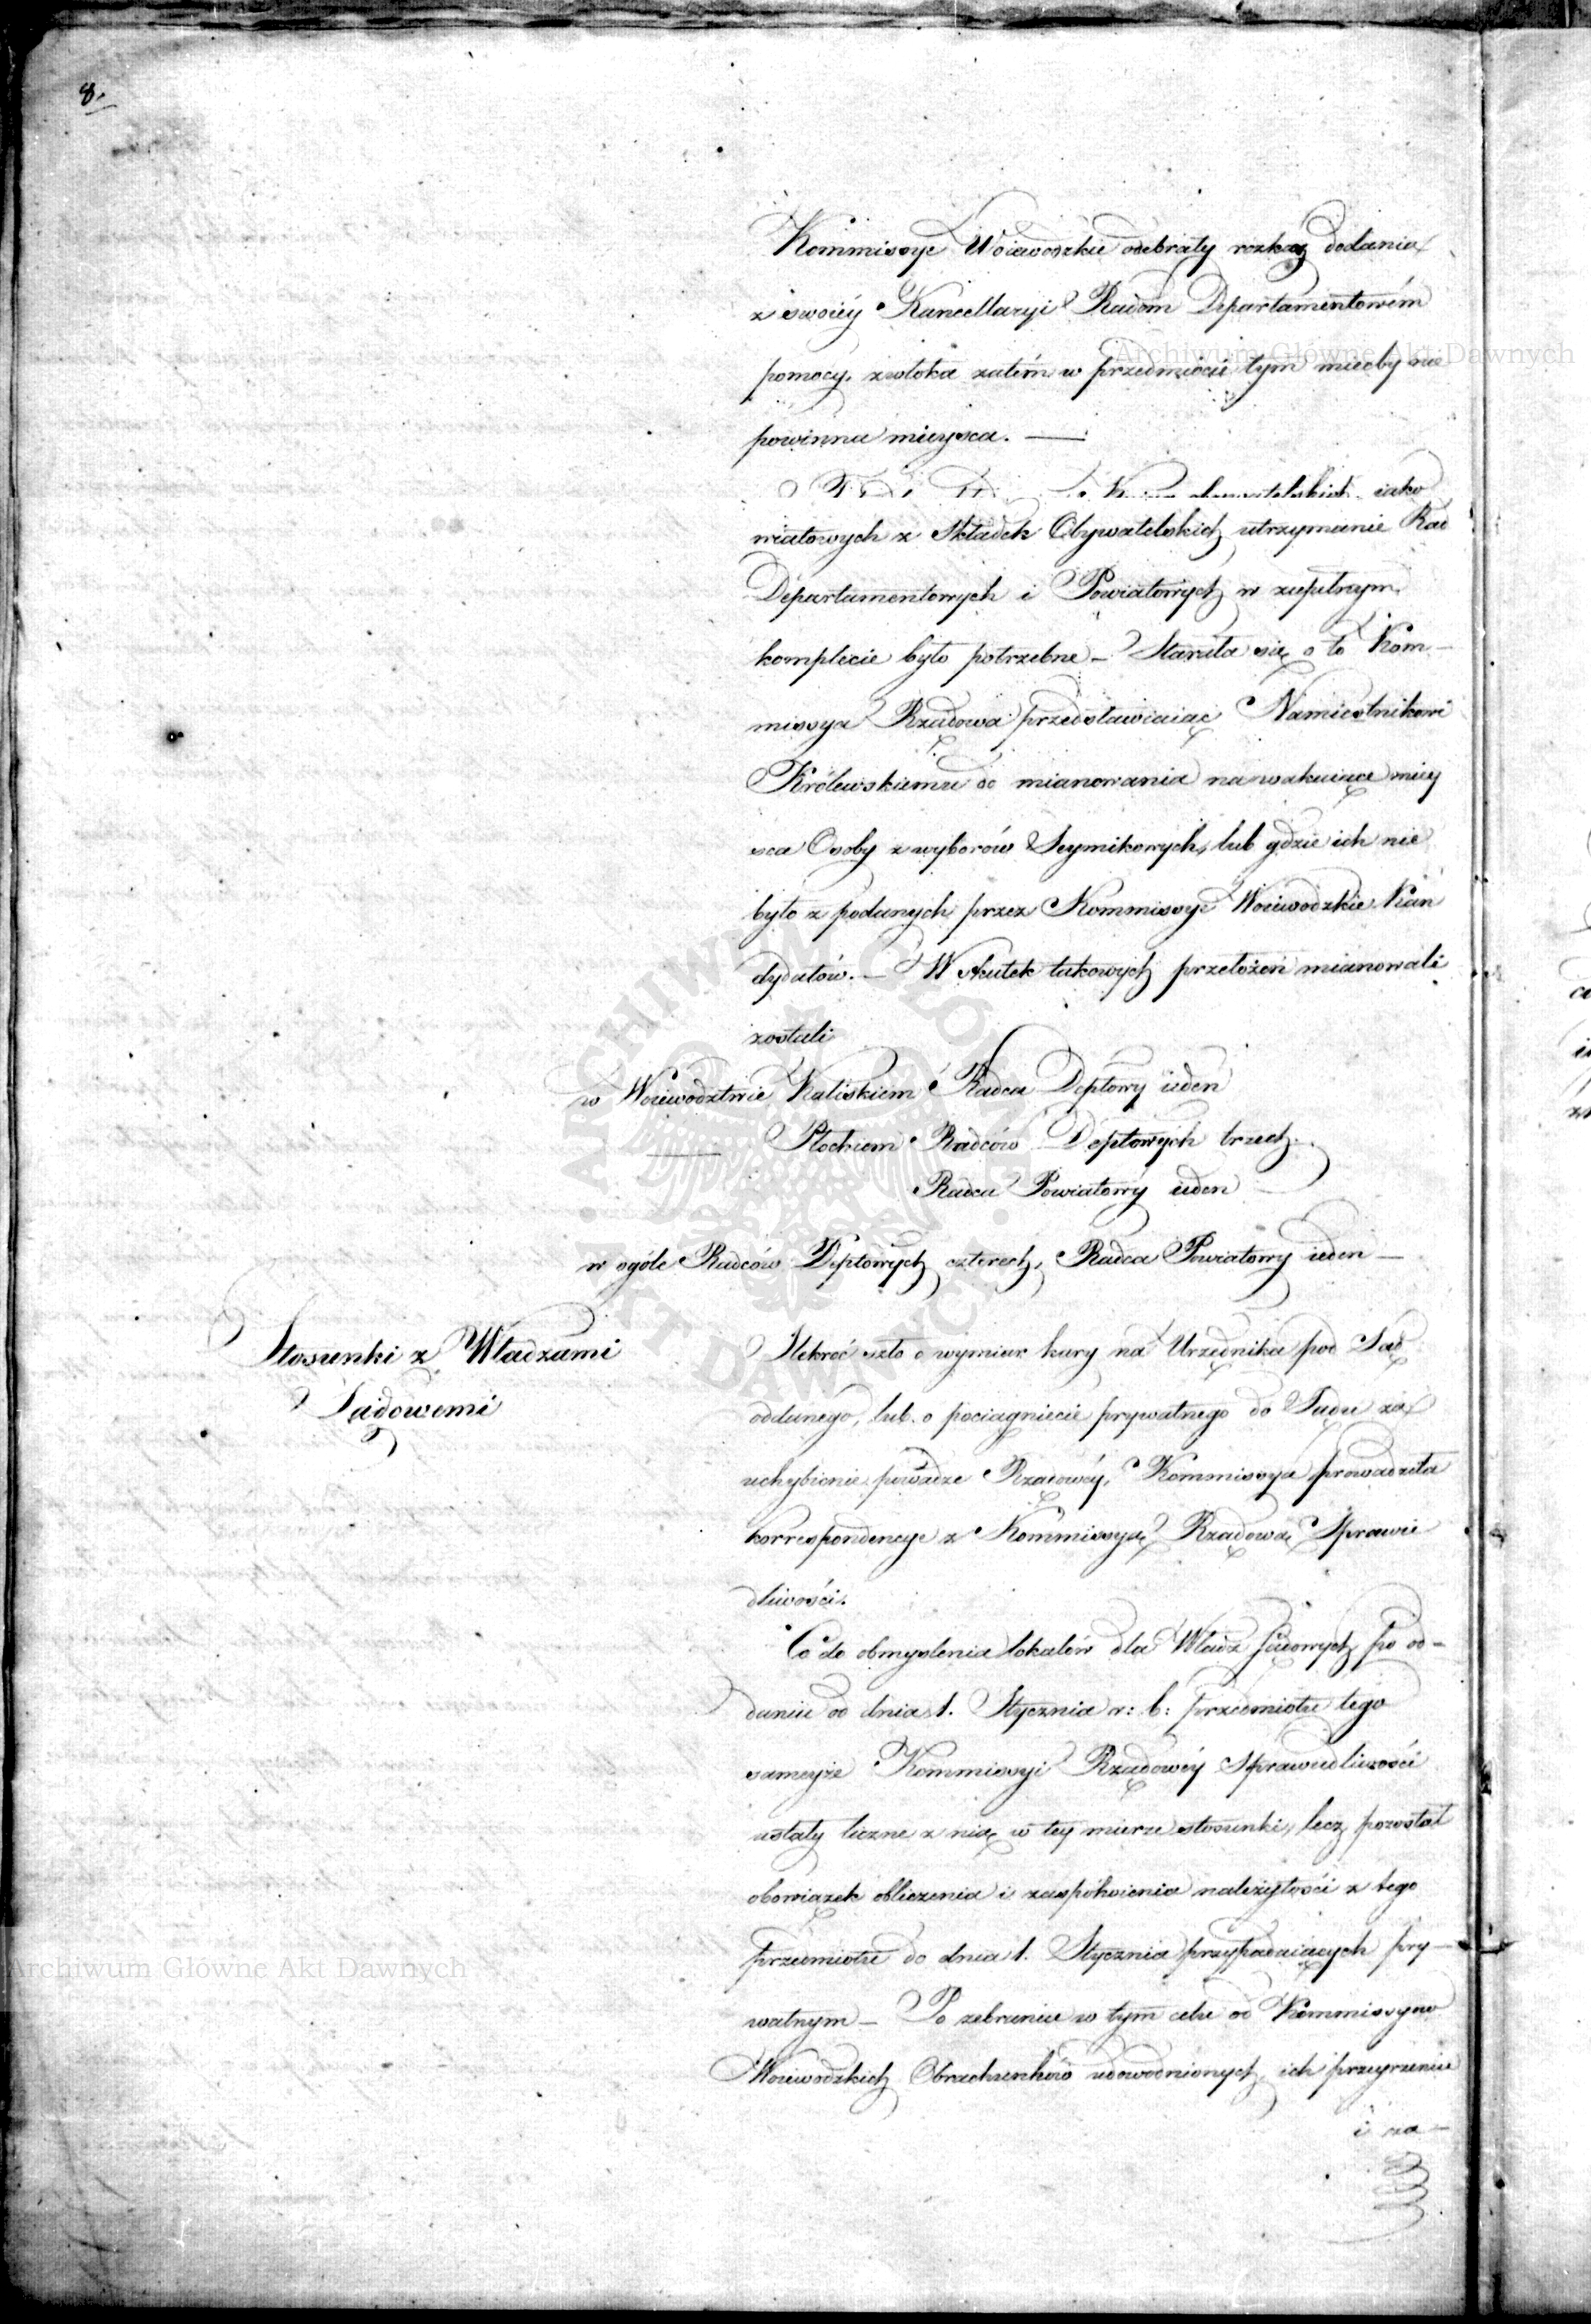 8.
Kommissye Woiewodzkie odebrały rozkaz dodania
z swoiéy Kancellaryi Radom Departamentowém
pomocy, zwłoka zatém w przedmiocie tym miećby nie
powinna mieysca. —
iako
wiatowych z Składek Obywatelskich utrzymanie Rad
Departamentowych i Powiatowych w zupełnym
komplecie było potrzebne — Starała się o to Kom-
missya Rządowa przedstawiaiąc Namiestnikowi
Królewskiemu do mianowania na wakuiące miey
sca Osoby z wyborów Seymikowych, lub gdzie ich nie
było z podanych przez Kommissye Woiewodzkie Kan
dydatów. — W skutek takowych przełożeń mianowali
zostali
w Woiewodztwie Kaliskiem Radca Deptowy ieden
— Płockiem Radców Deptowych trzech.
Radca Powiatowy ieden
w ogóle Radców Deptowych czterech, Radca Powiatowy ieden —
Stosunki z Władzami
Sądowemi
Ilekroć szło o wymiar kary na Urzędnika pod Sąd
oddanego, lub o pociągnięcie prywatnego do Sądu za
uchybienie powadze Rządowéy, Kommissya prowadziła
korrespondencye z Kommissyą Rządową Sprawie
dliwości.
Co do obmyślenia lokalów dla Władz Sądowych po od-
daniu od dnia 1. Stycznia r: b: przedmiotu tego
sameyże Kommissyi Rządowéy Sprawiedliwości
ustały liczne z nią w tey mierze stosunki, lecz pozostał
obowiązek obliczenia i zaspokoienia należytości z tego
przedmiotu do dnia 1. Stycznia przypadaiących pry-
watnym — Po zebraniu w tym celu od Kommissyów
Woiewodzkich Obrachunków udowodnionych, ich przeyrzeniu
i za-
Archiwum Główne Akt Dawnych
Archiwum Główne Akt Dawnych
ARCHIWUM GŁÓWNE AKT DAWNYCH